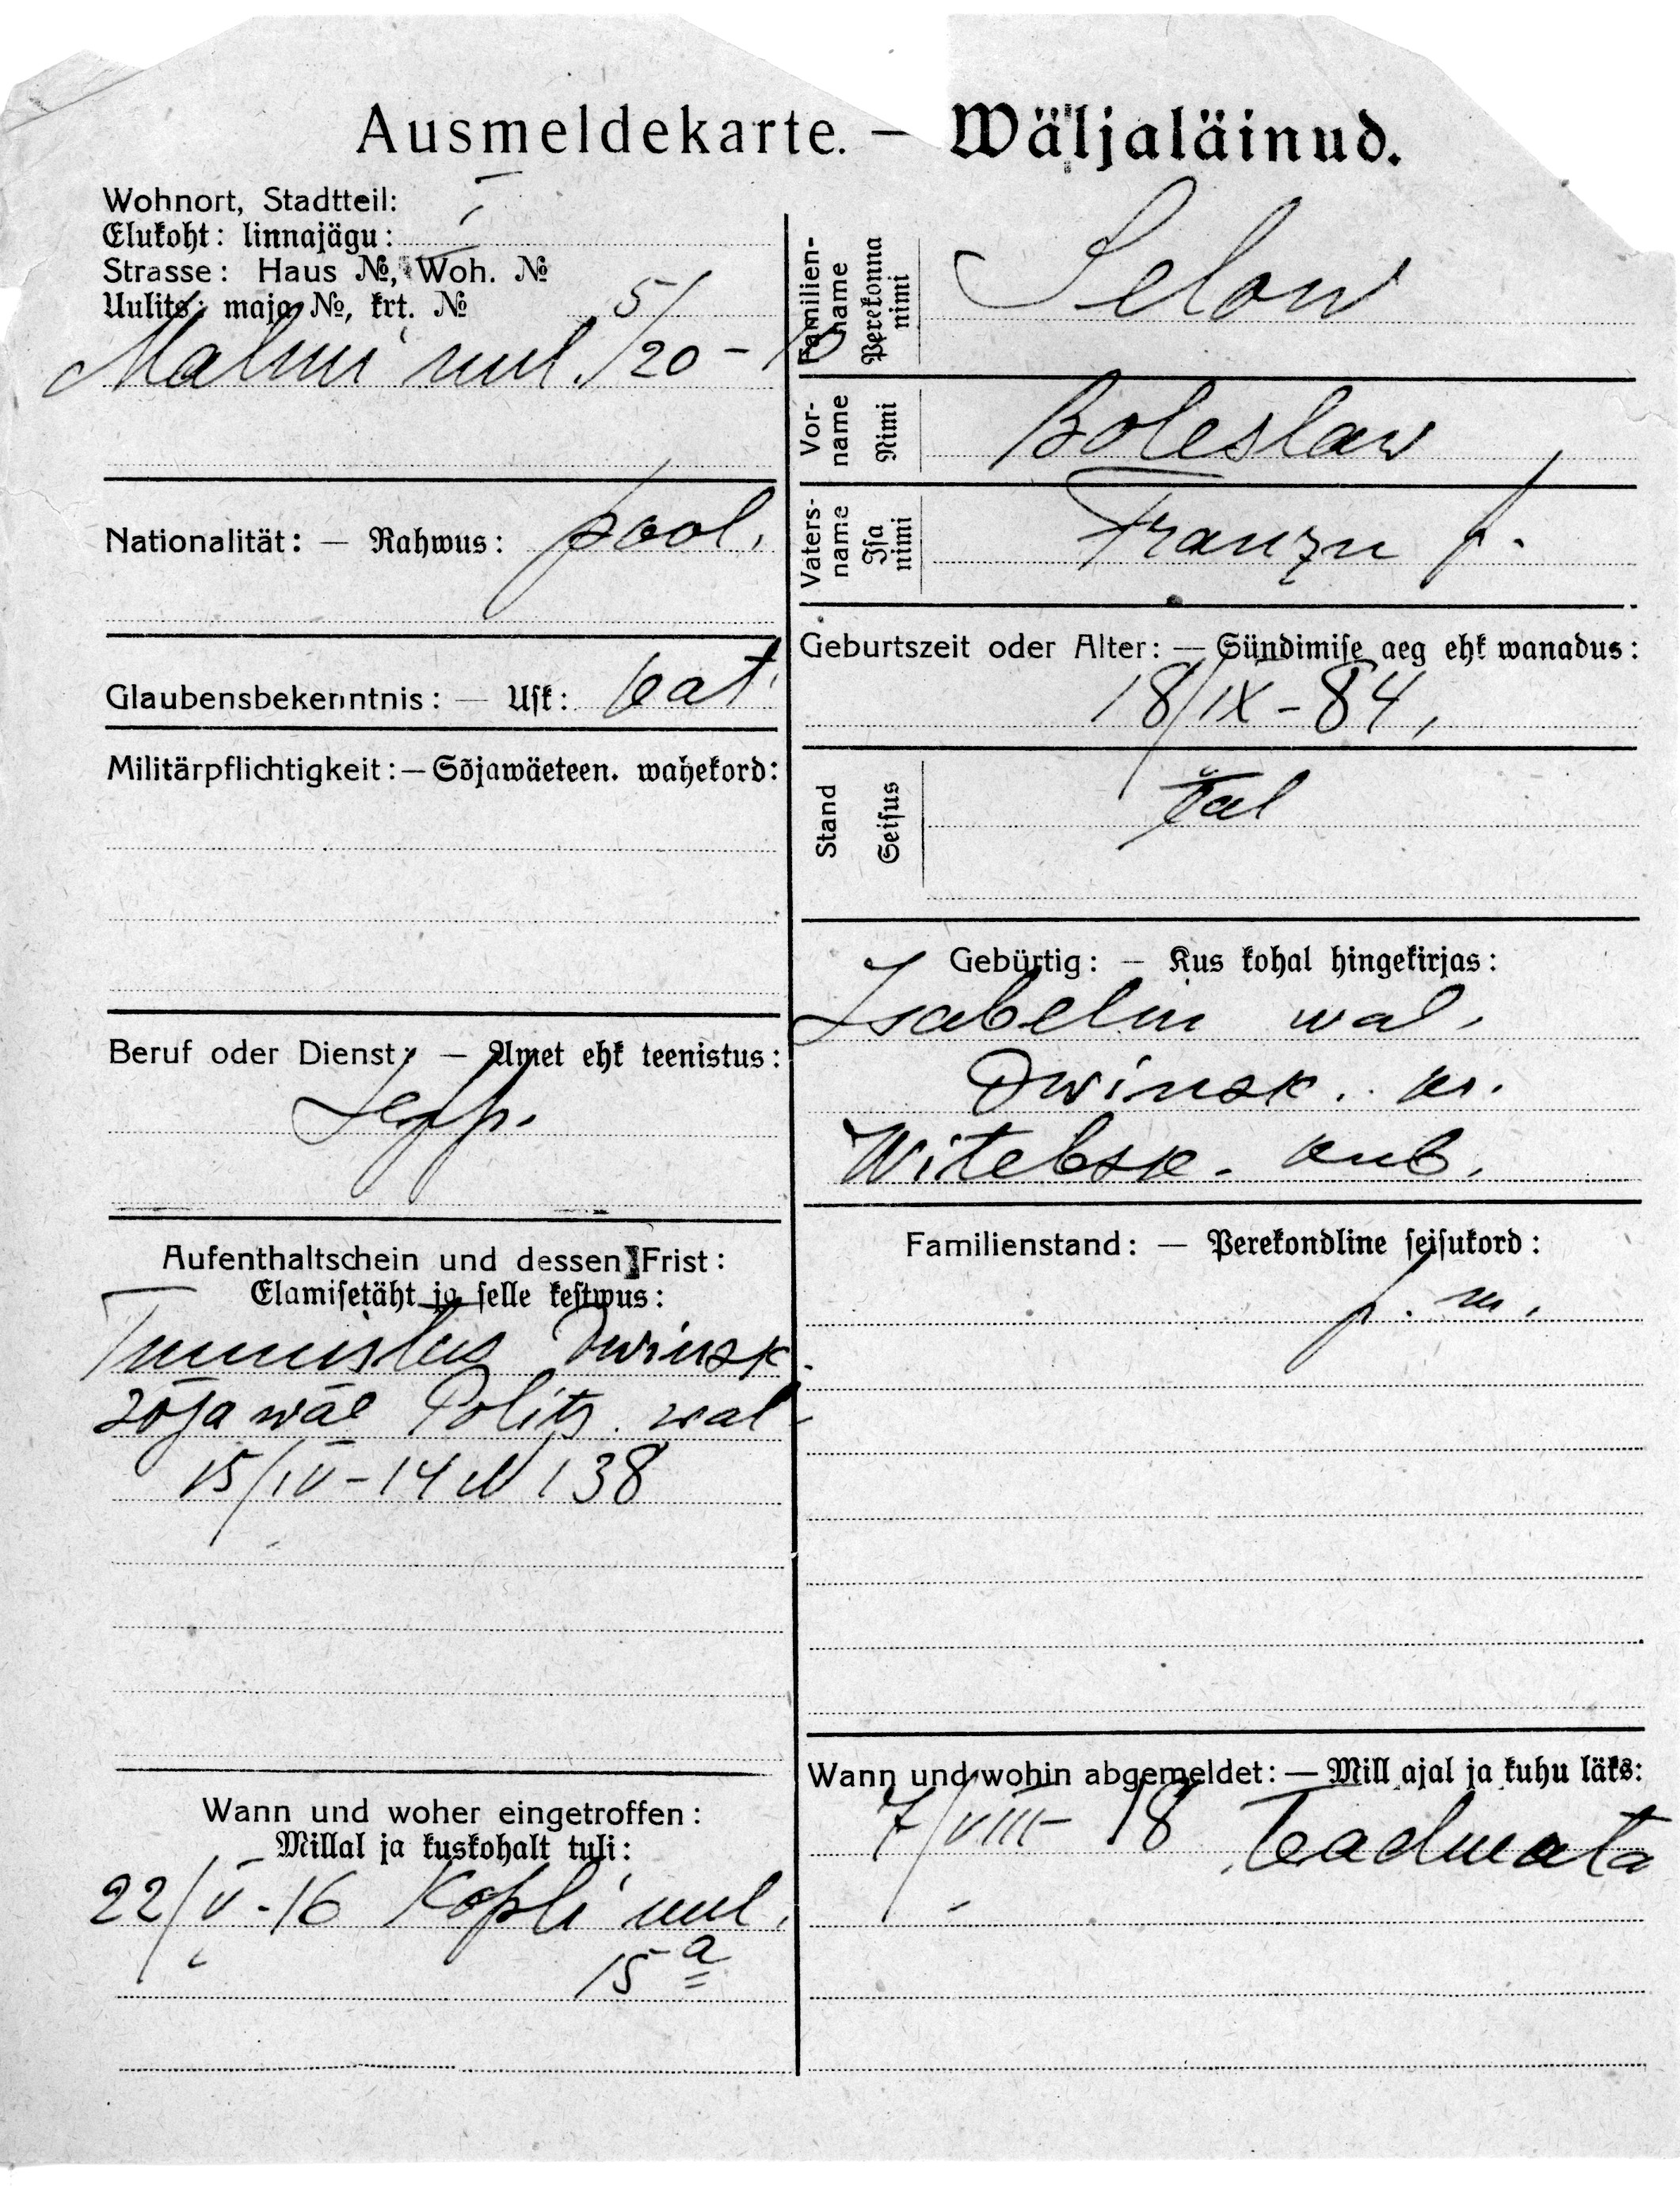 Ausmeldekarte. — Wäljaläinud.
Wohnort, Stadtteil:
Elukoht: linnajägu: I
Strasse: Haus №, Woh. №
Uulits: maja №, krt. № 5/
Malmi uul. /20 -
Nationalität: — Rahwus: pool.
Glaubensbekenntnis: — Usk: kat.
Militärpflichtigkeit: — Sõjawäeteen. wahekord:
Beruf oder Dienst: — Amet ehk teenistus:
Sepp.
Aufenthaltschein und dessen Frist:
Elamisetäht ja selle kestwus:
Tunnistus Dwinsk.
sõjawäe Politz. wal
15/IV - 14 N 138
Wann und woher eingetroffen:
Millal ja kuskohalt tuli:
22/V - 16 Kopli uul.
15 a
Familien-
name
Perekonna
nimi
Selow
Vor-
name
Nimi
Boleslaw
Vaters-
name
Isa
nimi
Franzu p.
Geburtszeit oder Alter: — Sündimise aeg ehk wanadus:
18/IX - 84,
Stand
Seisus
tal
Gebürtig: — Kus kohal hingekirjas:
Isabelin wal.
Dwinsk. kr.
Witebsk. kub.
Familienstand: — Perekondline seisukord:
p. m.
Wann und wohin abgemeldet: — Mill ajal ja kuhu läks:
7/VIII - 18 teadmata